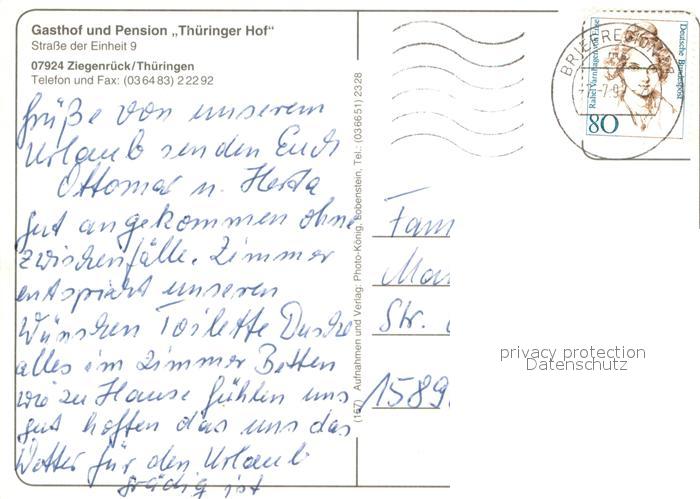 Gasthof und Pension „Thüringer Hof“
Straße der Einheit 9
07924 Ziegenrück/Thüringen
Telefon und Fax: (03 64 83) 2 22 92
Grüße von unserem
Urlaub senden Euch
Ottomar u. Herta
gut angekommen ohne
zwischenfälle. Zimmer
entspricht unseren
Wünschen Toilette Dusche
alles im Zimmer Betten
wie zu Hause fühlen uns
gut hoffen das uns das
Wetter für den Urlaub
gnädig ist
(167) Aufnahmen und Verlag: Photo-König, Lobenstein, Tel.: (036651) 2328
BRIEFREGION
Rahel Varnhagen von Ense
Deutsche Bundespost
80
Fam
Str.
1589
privacy protection
Datenschutz